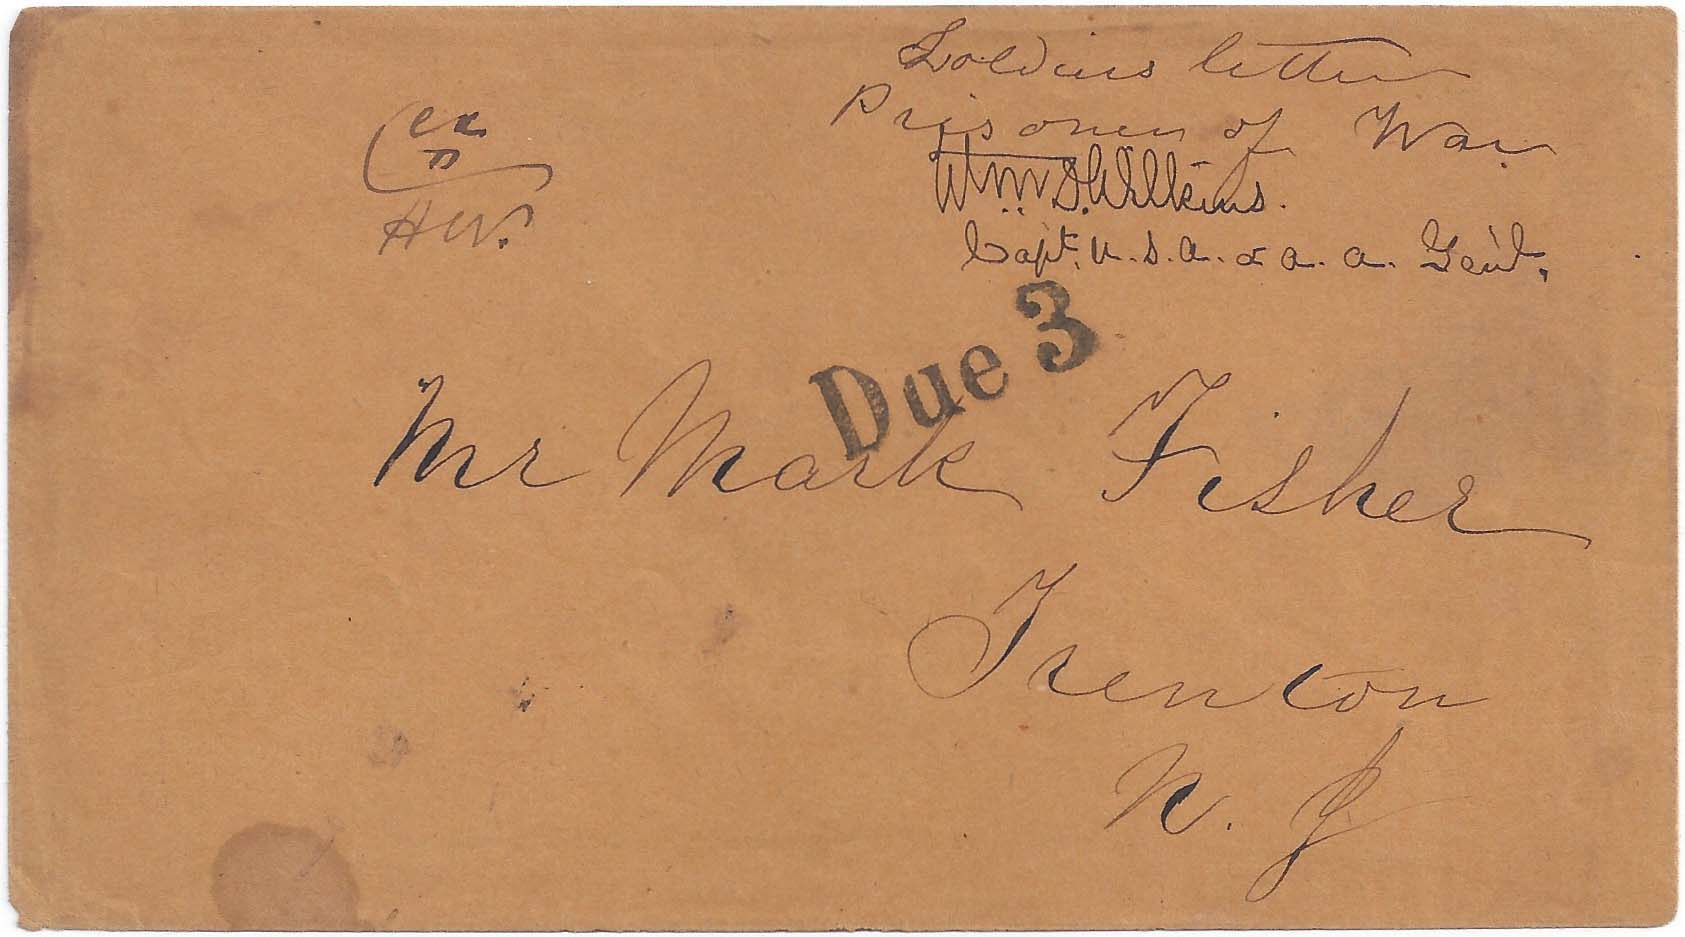 Soldiers letter
Prisoner of War
Wm D. Wilkins.
Capt. U.S.A. & a. a. Genl.
ex
HW.
Due 3
Mr Mark Fisher
Trenton
N. J